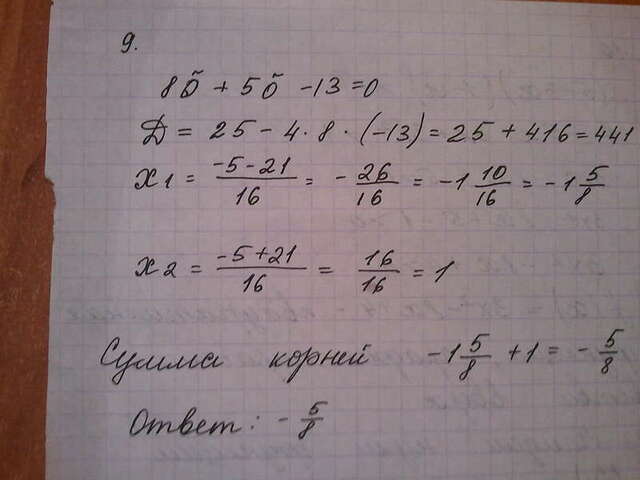 9.
8Õ + 5Õ - 13 = 0
Д = 25 - 4 · 8 · (-13) = 25 + 416 = 441
x1 = (-5 - 21)/16 = - 26/16 = -1 10/16 = -1 5/8
x2 = (-5 + 21)/16 = 16/16 = 1
Сумма корней -1 5/8 + 1 = - 5/8
Ответ: - 5/8